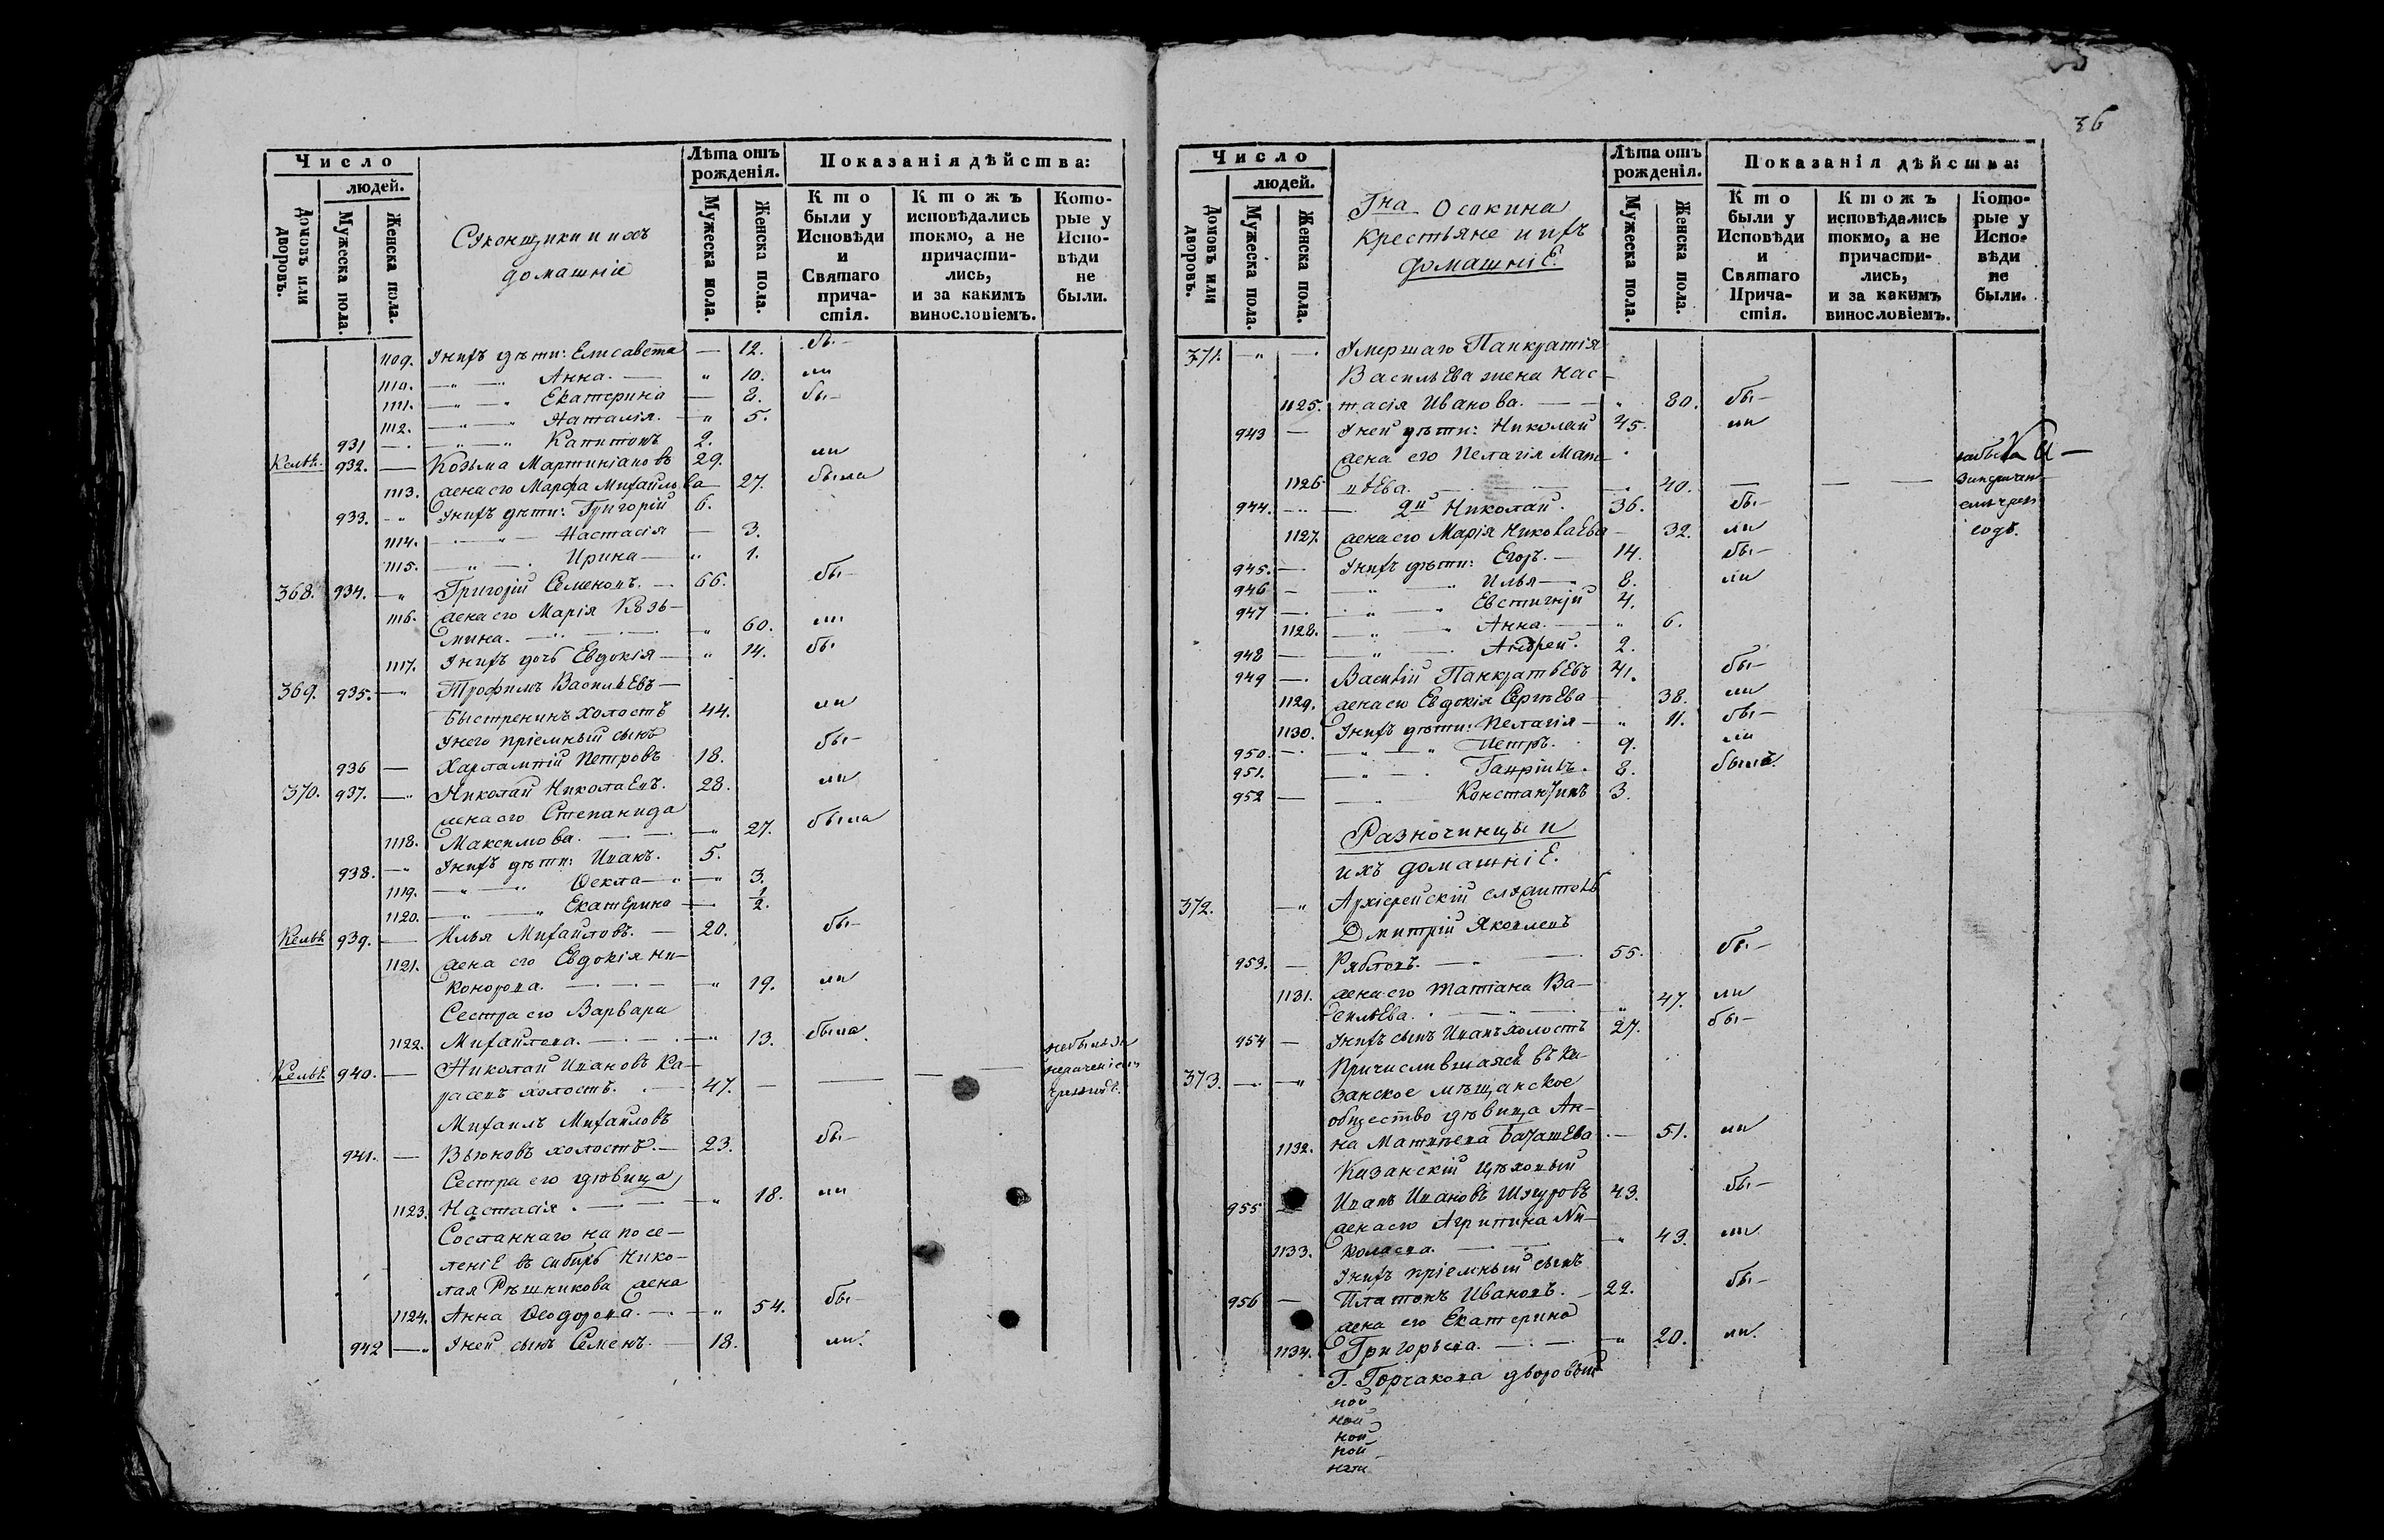 36
Число
Лѣта отъ
рожденія.
Показанія дѣйства:
людей.
Домовъ или
дворовъ.
Мужеска пола.
Женска пола.
Суконщики и ихъ
домашніе
Мужеска пола.
Женска пола.
Кто
были у
Исповѣди
и
Святаго
прича-
стія.
Ктожъ
исповѣдались
токмо, а не
причасти-
лись,
и за какимъ
винословіемъ.
Кото-
рые у
Испо-
вѣди
не
были.
1109. Унихъ дѣти: Елисавета — 12. бы-
1110. —"— Анна. — " 10. ли
1111. —"—" Екатерина — 8. бы-
1112. —"—" Наталія. —" 5.
931 —. —"—" Капитонъ 2.
932. — Козьма Мартиніановъ 29. ли
1113. жена его Марфа Михайлова — 27. была
933. -" Унихъ дѣти: Григорій 6.
1114. —"— Настасія — 3.
1115. —"—. Ирина — " 1.
368. 934. —" Григорій Семеновъ. — 66. бы-
1116. жена его Марія Козь-
мина. — " 60. ли
1117. Унихъ дочь Евдокія — " 14. бы
369. 935. —" Трофимъ Васильевъ —
Быстренинъ холостъ 44. ли
Унего пріемный сынъ
936 — Харлампій Петровъ 18. бы-
370. 937. —" Николай Николаевъ. 28. ли
жена его Степанида
1118. Максимова. — 27. была
938. —" Унихъ дѣти: Иванъ. 5.
1119. —"—" Ѳекла —" —" 3.
1120. —"—" Екатерина — 1/2.
939. — Илья Михайловъ. — 20. бы-
1121. жена его Евдокія Ни-
конорова. — —" 19. ли
Сестра его Варвара
1122. Михайлова. — —" 13. была
940. — Николай Ивановъ Ка-
расевъ холостъ. — 47. —
Михаилъ Михайловъ
941. — Вьюновъ холостъ. — 23. бы-
Сестра его дѣвица
1123. Настасія . — — " 18. ли
Сосланнаго на посе-
леніе въ сибирь Нико-
лая Рѣшникова жена
1124. Анна Ѳеодорова. —. —" 54. бы-
942 —" Уней сынъ Семенъ. — 18. ли.
Число
Лѣта отъ
рожденія.
Показанія дѣйства:
людей.
Домовъ или
дворовъ.
Мужеска пола.
Женска пола.
Гна Осокина
крестьяне и ихъ
домашніе.
Мужеска пола.
Женска пола.
Кто
были у
Исповѣди
и
Святаго
Прича-
стія.
Ктожъ
исповѣдались
токмо, а не
причасти-
лись,
и за какимъ
винословіемъ.
Кото-
рые у
Испо-
вѣди
не
были.
371. —" —. Умершаго Панкратія
Васильева жена Нас-
1125. тасія Иванова. — — " 80. бы-
943 — Уней дѣти: Николай 45. ли
жена его Пелагія Мат-
1126. вѣева. — 40. —
944. — 2й Николай. 36. бы-
1127. жена его Марія Николаева — 32. ли
945. —. Унихъ дѣти: Егоръ. — 14. бы-
946 — —"— Илья — 8. ли
947 —. —"—" Евстигній 4.
1128. —"—" Анна. — " 6.
948 — —"—. Андрей. 2.
949 —. Василій Панкратьевъ 41. бы-
1129. жена его Евдокія Сергѣева — 38. ли
1130. Унихъ дѣти: Пелагія — " 11. бы-
950. —. —"—" Петръ. 9. ли
951. —"—. Гавріилъ. 8. были.
952 — —"— Константинъ 3.
Разночинцы и
ихъ домашніе.
372. —" Архіерейскій служитель
Дмитрій Яковлевъ
953. — Рябловъ. — 55. бы-
1131. жена его Татіана Ва-
сильева. — " 47. ли
954 — Унихъ сынъ Иванъ холостъ 27. бы-
373. —. —" Причислившаяся въ ка-
занское мѣщанское
общество дѣвица Ан-
1132. на Матвѣева — 51. ли
Казанскій цѣховый
955 — Иванъ Ивановъ 43. бы-
жена его Агрипина Ни-
1133. колаева. — —" 43. ли
Унихъ пріемный сынъ
956 — Платонъ Ивановъ. — 22. бы-
жена его Екатерина
1134. Григорьева. — —" 20. ли.
Г. Горчакова дворовый
ной
ной
ной
ной